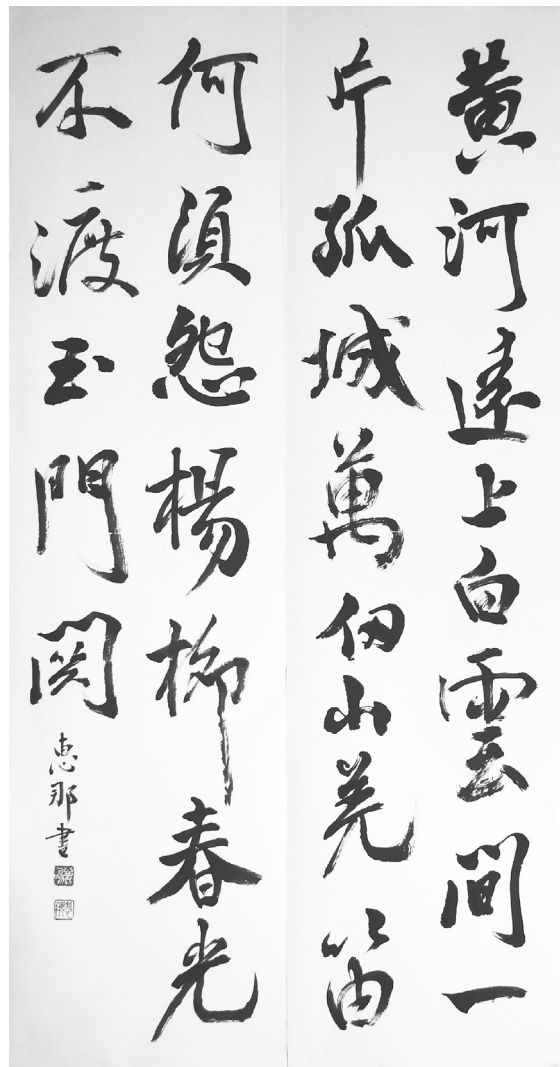 黄河遠上白雲間一
片孤城萬仞山羌笛
何須怨楊柳春光
不渡玉門関
惠那書